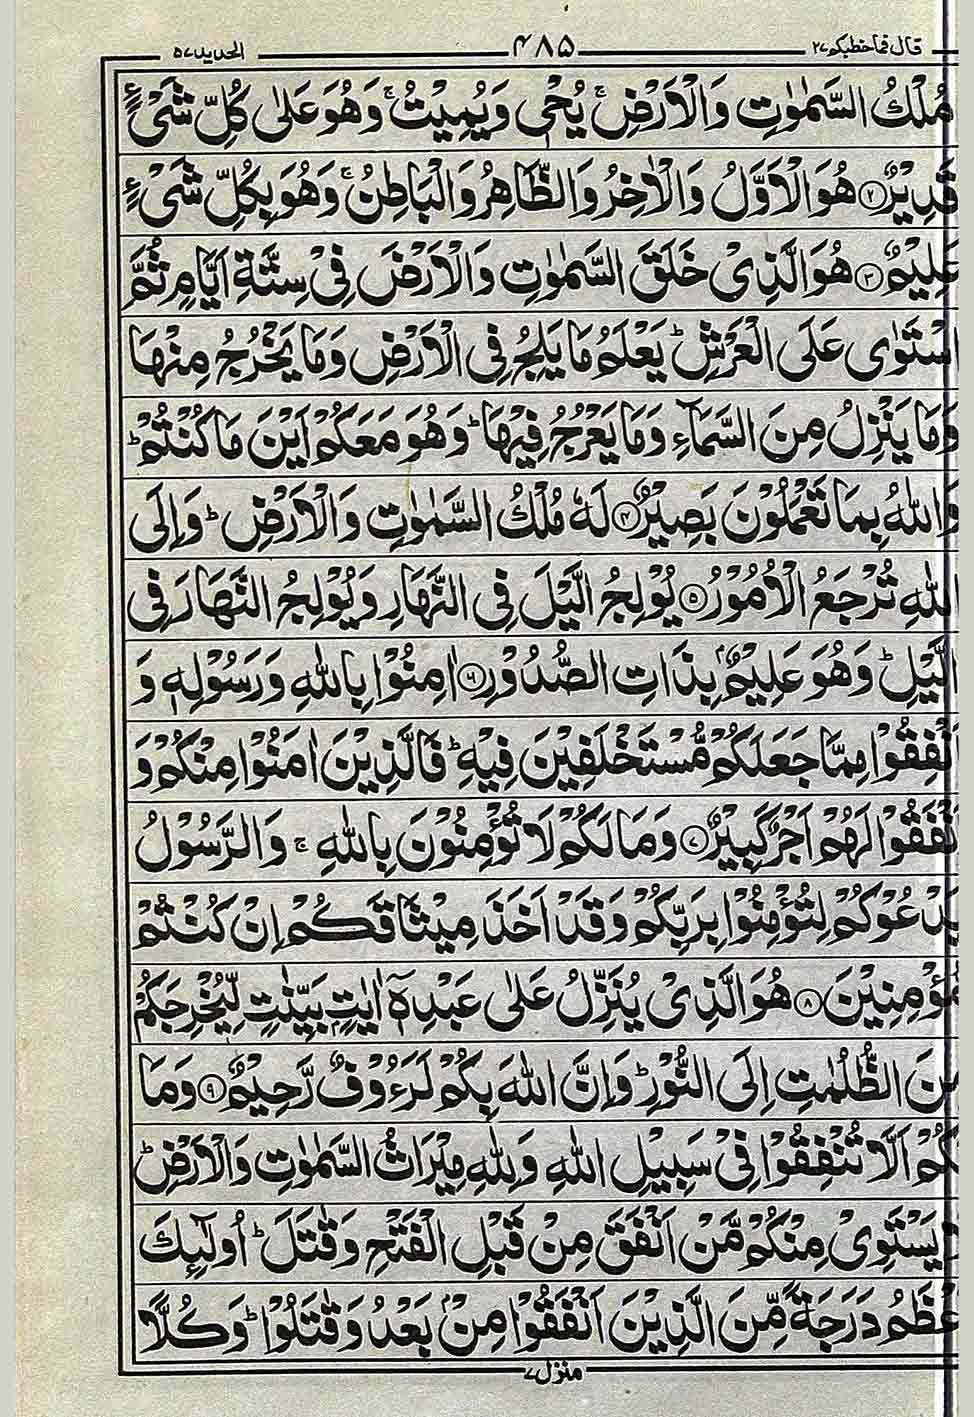 قال فما خطبكم ٢٧ ۴۸۵ الحديد ٥٧
مُلْكُ السَّمٰوٰتِ وَالْاَرْضِ ۚ يُحْيٖ وَيُمِيْتُ ۚ وَهُوَ عَلٰى كُلِّ شَيْءٍ
قَدِيْرٌ ۝۲ هُوَ الْاَوَّلُ وَالْاٰخِرُ وَالظَّاهِرُ وَالْبَاطِنُ ۚ وَهُوَ بِكُلِّ شَيْءٍ
عَلِيْمٌ ۝۳ هُوَ الَّذِيْ خَلَقَ السَّمٰوٰتِ وَالْاَرْضَ فِيْ سِتَّةِ اَيَّامٍ ثُمَّ
اسْتَوٰى عَلَى الْعَرْشِ ؕ يَعْلَمُ مَا يَلِجُ فِي الْاَرْضِ وَمَا يَخْرُجُ مِنْهَا
وَمَا يَنْزِلُ مِنَ السَّمَآءِ وَمَا يَعْرُجُ فِيْهَا ؕ وَهُوَ مَعَكُمْ اَيْنَ مَا كُنْتُمْ ؕ
وَاللّٰهُ بِمَا تَعْمَلُوْنَ بَصِيْرٌ ۝۴ لَهٗ مُلْكُ السَّمٰوٰتِ وَالْاَرْضِ ؕ وَاِلَى
اللّٰهِ تُرْجَعُ الْاُمُوْرُ ۝۵ يُوْلِجُ الَّيْلَ فِي النَّهَارِ وَيُوْلِجُ النَّهَارَ فِي
الَّيْلِ ؕ وَهُوَ عَلِيْمٌۢ بِذَاتِ الصُّدُوْرِ ۝۶ اٰمِنُوْا بِاللّٰهِ وَرَسُوْلِهٖ وَ
نْفِقُوْا مِمَّا جَعَلَكُمْ مُّسْتَخْلَفِيْنَ فِيْهِ ؕ فَالَّذِيْنَ اٰمَنُوْا مِنْكُمْ وَ
نْفَقُوْا لَهُمْ اَجْرٌ كَبِيْرٌ ۝۷ وَمَا لَكُمْ لَا تُؤْمِنُوْنَ بِاللّٰهِ ۚ وَالرَّسُوْلُ
يَدْعُوْكُمْ لِتُؤْمِنُوْا بِرَبِّكُمْ وَقَدْ اَخَذَ مِيْثَاقَكُمْ اِنْ كُنْتُمْ
مُّؤْمِنِيْنَ ۝۸ هُوَ الَّذِيْ يُنَزِّلُ عَلٰى عَبْدِهٖٓ اٰيٰتٍۭ بَيِّنٰتٍ لِّيُخْرِجَكُمْ
مِّنَ الظُّلُمٰتِ اِلَى النُّوْرِ ؕ وَاِنَّ اللّٰهَ بِكُمْ لَرَءُوْفٌ رَّحِيْمٌ ۝۹ وَمَا
كُمْ اَلَّا تُنْفِقُوْا فِيْ سَبِيْلِ اللّٰهِ وَلِلّٰهِ مِيْرَاثُ السَّمٰوٰتِ وَالْاَرْضِ ؕ
يَسْتَوِيْ مِنْكُمْ مَّنْ اَنْفَقَ مِنْ قَبْلِ الْفَتْحِ وَقٰتَلَ ؕ اُولٰٓئِكَ
عْظَمُ دَرَجَةً مِّنَ الَّذِيْنَ اَنْفَقُوْا مِنْۢ بَعْدُ وَقٰتَلُوْا ؕ وَكُلًّا
منزل ۷